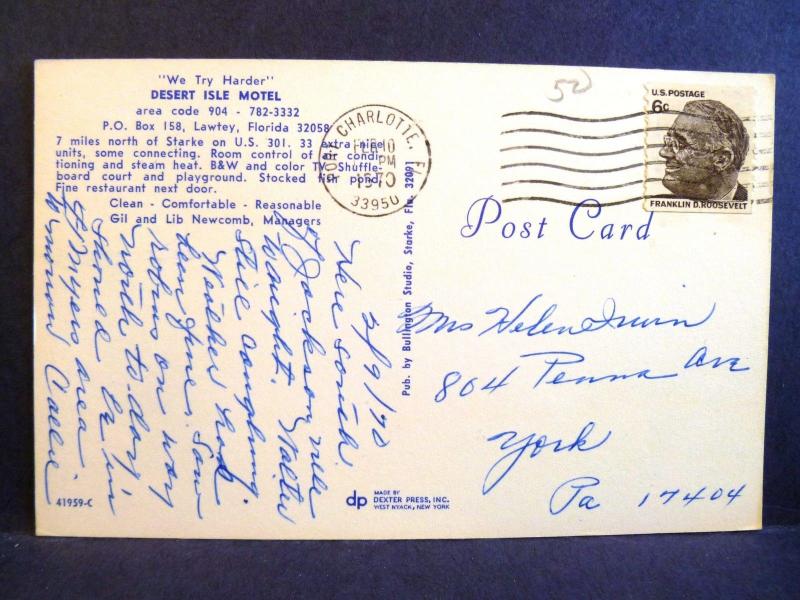 "We Try Harder"
DESERT ISLE MOTEL
area code 904 - 782-3332
P.O. Box 158, Lawtey, Florida 32058
7 miles north of Starke on U.S. 301. 33 extra nice
units, some connecting. Room control of air condi-
tioning and steam heat. B&W and color TV. Shuffle-
board court and playground. Stocked fish pond.
Fine restaurant next door.
Clean - Comfortable - Reasonable
Gil and Lib Newcomb, Managers
2/9/70
Here south
of Jacksonville
tonight. Walter
still coughing.
Weather has
been fine. Saw
robins on way
north to-day.
Should be in
Ft Myers area
tomorrow
Callie
41959-C
Pub. by Bullington Studio, Starke, Fla. 32091
dp
MADE BY
DEXTER PRESS, INC.
WEST NYACK, NEW YORK
PORT CHARLOTTE, FL
FEB 10
PM
1970
33950
50
U.S. POSTAGE
6c
FRANKLIN D. ROOSEVELT
Post Card
Mrs Helen Irwin
804 Penna Ave
York
Pa 17404